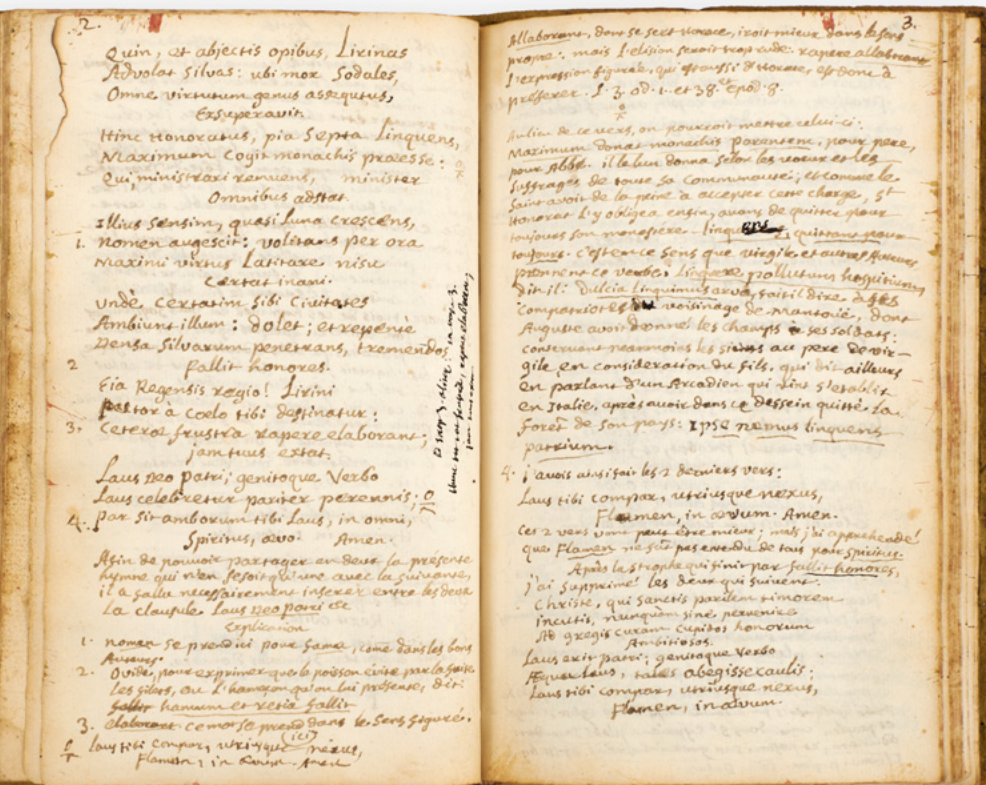 2.
Quin, et abjectis opibus, Lirinas
Advolat silvas: ubi mox sodales,
Omne virtutum genus assequtus,
Exsuperavit.
Hinc Honoratus, pia septa linquens,
Maximum cogit monachis praeesse:
Qui, ministrari renuens, minister
Omnibus adstat.
Illius sensim, quasi Luna crescens,
1. Nomen augescit: volitans per ora
Maximi virtus latitare nisu
Certat inani.
Unde certatim sibi Civitates
Ambiunt illum: dolet; et repente
Densa silvarum penetrans, tremendos
2 fallit honores.
Eia Regensis regio! Lirini
pastor à Coelo tibi destinatur:
3. Ceterae frustra rapere elaborant;
jam tuus extat.
Laus Deo patri; genitoque Verbo
Laus celebretur pariter perennis;
4. Par sit amborum tibi laus, in omni,
Spiritus, aevo. Amen.
Afin de pouvoir partager en deux la présente
hymne qui n'en fesoit qu'une avec la suivante,
il a fallu necessairement inserer entre les deux
La clausule Laus Deo patri &c
Explication
1. nomen se prend ici pour fama, come dans les bons
Auteurs.
2. Ovide, pour exprimer que le poisson évite par la fuite
les filets, ou l'hameçon qu'on lui présente, dit:
hamum et retia fallit
3. elaborant ce mot se prend dans le sens figuré.
laus tibi compar, utriusque nexus,
(ici)
Flamen, in aevum. Amen
3.
Allaborant, dont se sert Horace, iroit mieux dans le sens
propre: mais l'elision seroit trop rude: rapere allaborant
L'expression figurée, qui est aussi d'Horace, est donc à
préferer. L. 3. od. 1. et 38. et Epod. 8.
Au lieu de ce vers, on pourroit mettre celui-ci:
Maximum donat monachis parentem, pour pere,
pour Abbé. il le leur donna selon les voeux et les
suffrages de toute sa Communauté; et comme le
Saint avoit de la peine à accepter cette charge, St
Honorat l'y obligea enfin, avant de quitter pour
toujours son monastère. linquens, quittant pour
toujours. C'est en ce sens que virgile et autres Auteurs
prennent ce verbe: Linquere pollutum hospitium
dit-il: Dulcia linquimus arva, fait il dire à ses
Compatriotes du voisinage de Mantoüe, dont
Auguste avoit donné les champs à ses soldats:
conservant neanmoins les siens au pere de vir-
gile, en consideration du fils, qui dit ailleurs
en parlant d'un Arcadien qui vint s'etablir
en Italie, après avoir dans ce dessein quitté la
forêt de son pays: Ipse nemus linquens
patrium.
4. J'avois ainsi fait les 2 derniers vers:
Laus tibi compar, utriusque nexus,
Flamen, in aevum. Amen.
Ces 2 vers vont peut être mieux; mais j'ai apprehendé
que Flamen ne fût pas entendu de tous pour Spiritus.
Après la strophe qui finit par fallit honores,
j'ai supprimé les deux qui suivent.
Christe, qui sanctis pariten timorem
incutis, nunquam sine pervenire
Ad gregis curam cupidos honorum
Ambitiosos.
Laus erit patri; genitoque Verbo
Æqua laus, tales abegisse caulis:
Laus tibi compar, utriusque nexus,
Flamen, in aevum.